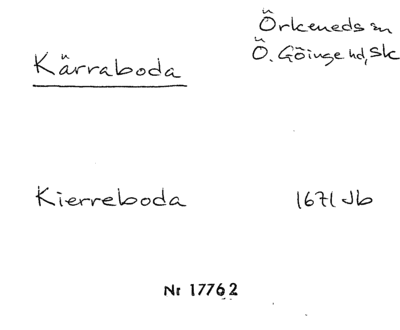 Örkeneds sn
Kärraboda
Ö. Göinge hd, Sk
Kierreboda 1671 Jb
Nr 17762